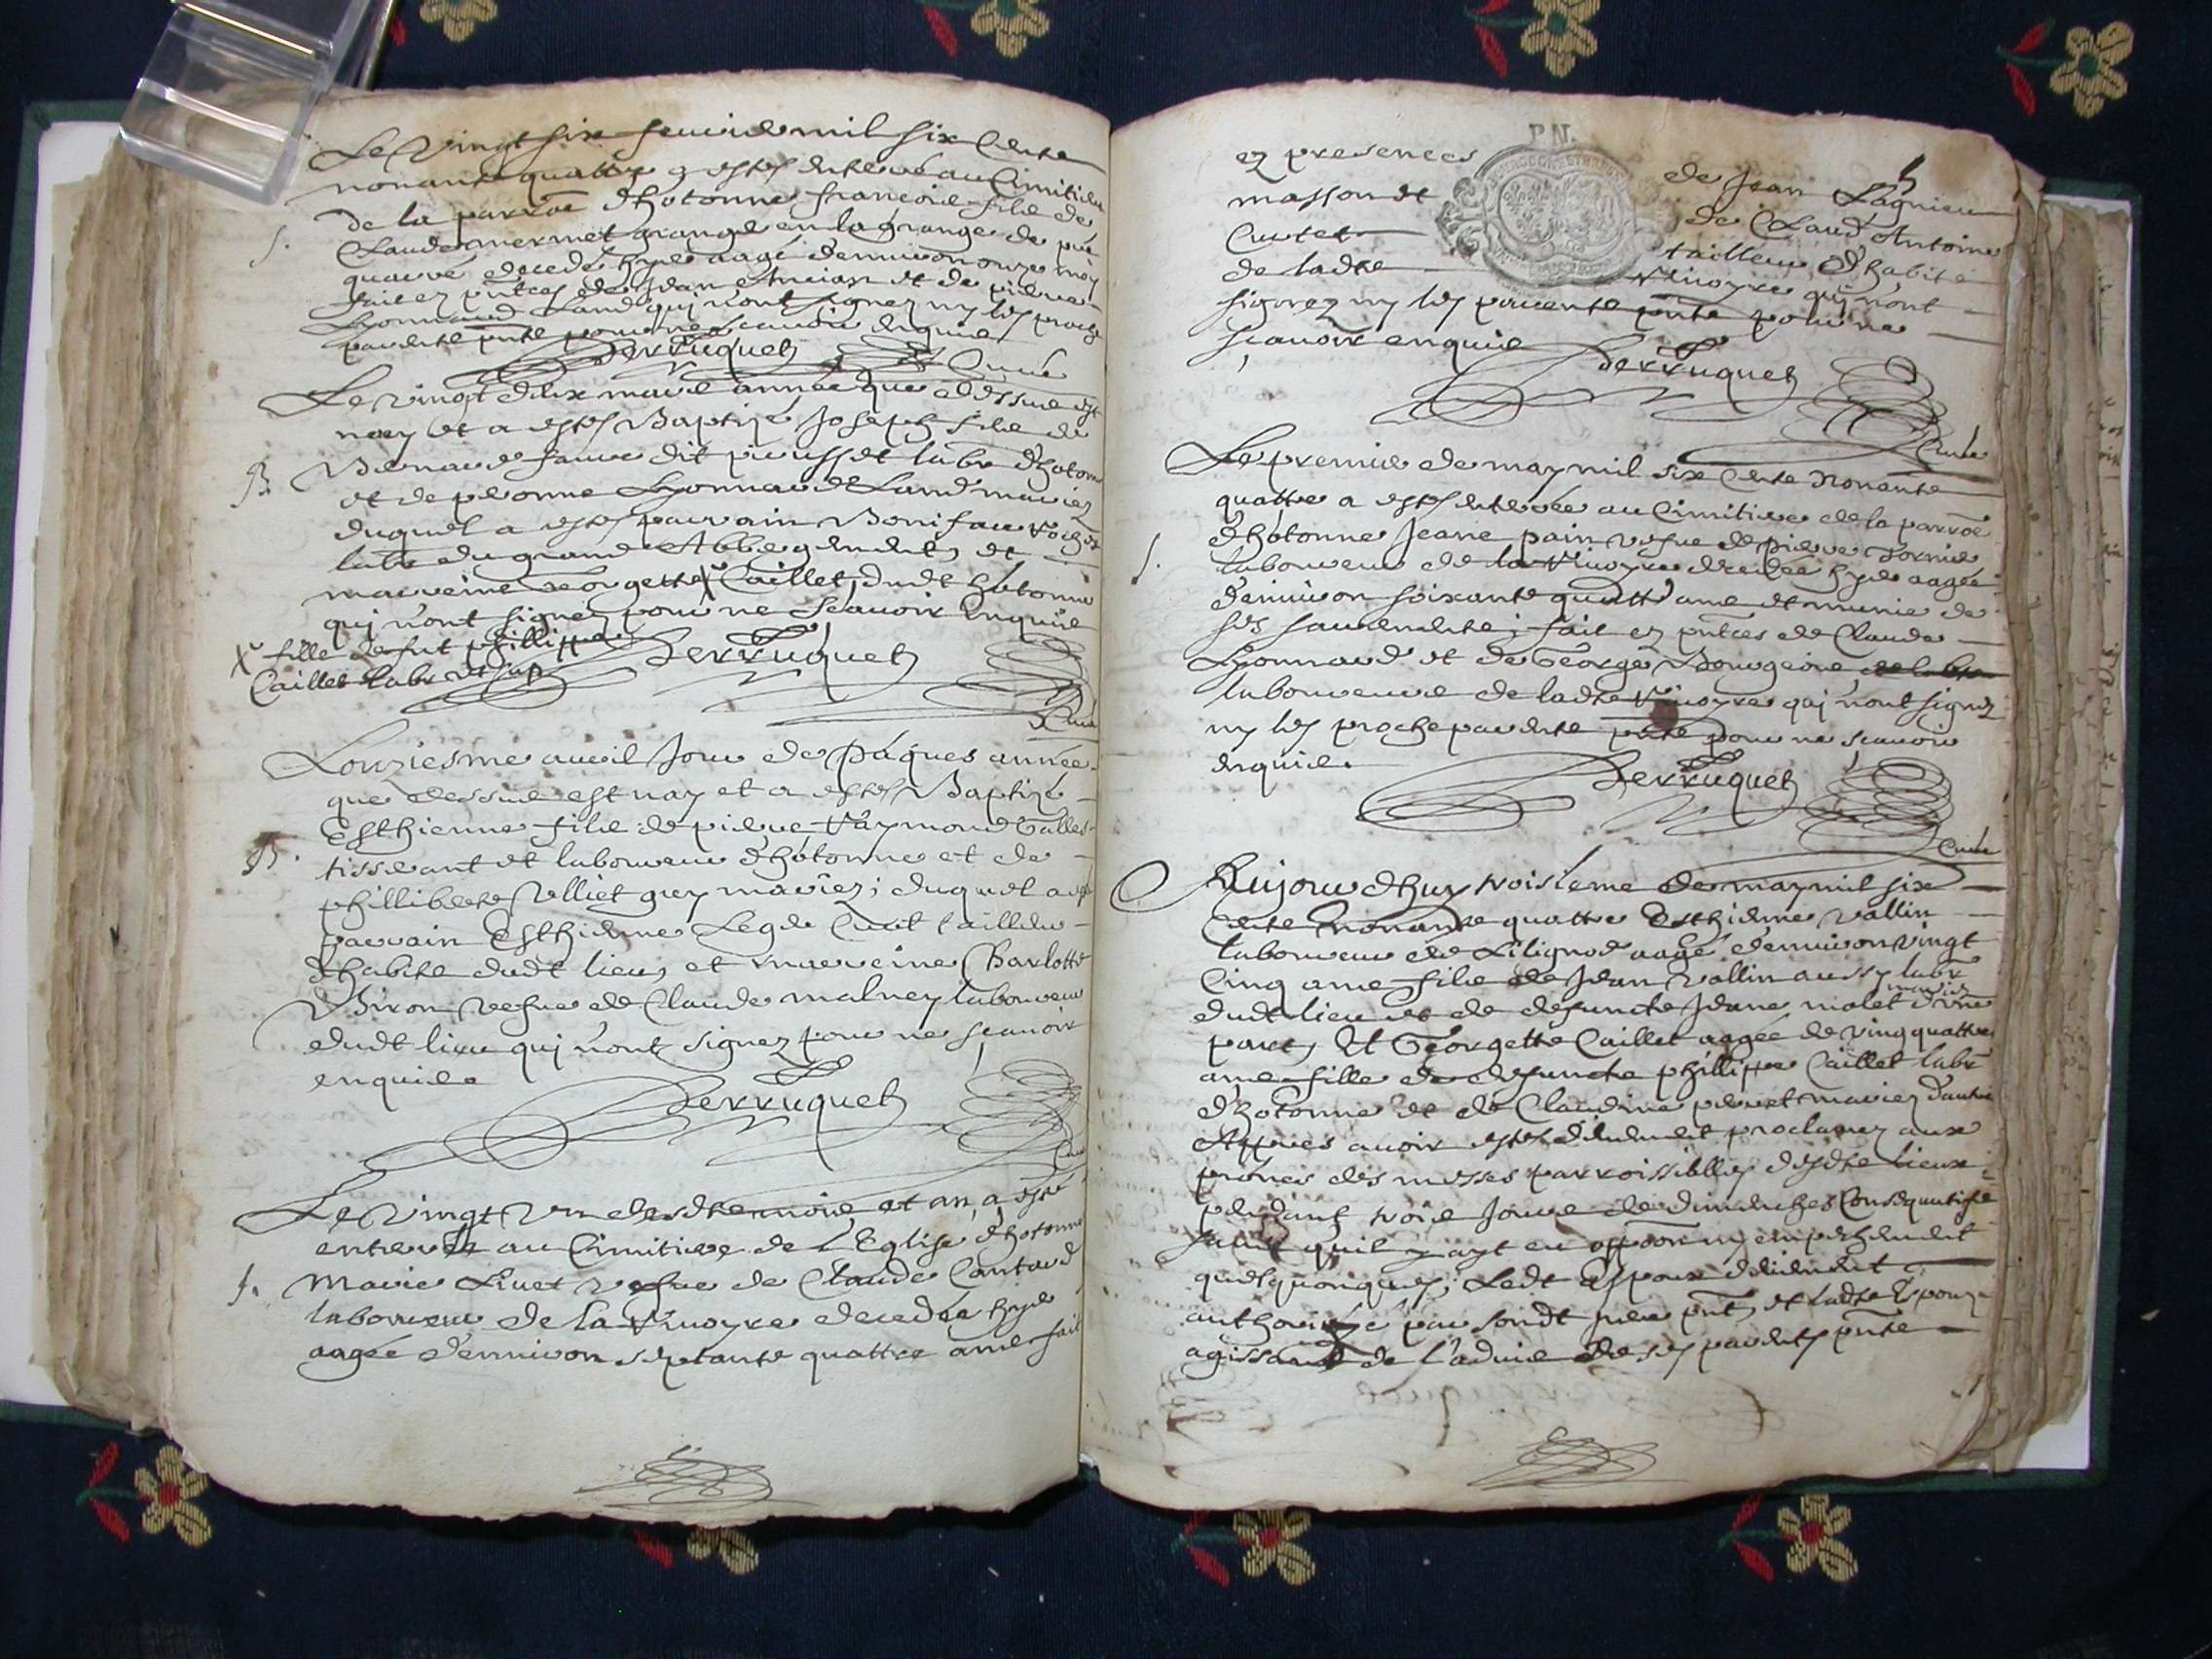 Le Vingt six feurier mil six Cents
nonante quattre a estes enterré au Cimitiere
de la parroe d'hotonne francois fils de
S.
Claude mermet granger en la grange de
quarré decedé hyer aagé d'enuiron onze mois
fait ez pntces de Jean et de pierre
Lyonnard qui n'ont signez ny les proche
parents pnts pour ne scauoir enquis
Perruquet
Curé
Le vingt deux mars année que dessus est
nay et a estes Baptizé Joseph fils de
B.
Benard faure dit labr d'hotone
et de peronne Lyonnard mariez
duquel a estes parrain Boniface
labr du grand Abbergement, et
marreine Georgette X Caillet, dudt hotonne
qui n'ont signez pour ne Scauoir Enquis
X fille de fut phillippe
Caillet labr
Perruquet
Curé
L'onziesme auril Jour de Pâques année
que dessus est nay et a estes Baptizé
Esthienne fils de pierre Raymond
B.
tisserant et laboureur d'hotonne et de
philliberte Velliet mariez; duquel a estes
parrain Esthienne tailleur
d'habits dudt lieu, et marreine Charlotte
Biron vefue de Claude malney laboureur
dudt lieu qui n'ont signez pour ne scauoir
enquis
Perruquet
Curé
Le Vingt Un desdts mois et an, a esté
enterrée au Cimitiere de L'Eglise d'hotonne
S.
Marie Liuet vefue de Claude Cantard
laboureur de la Riuoyre decedée hyer
aagée d'enuiron septante quattre ans fait
P.N.
ez presences de Jean Lagnieu
masson et de Claud Antoine
Cartet tailleur d'habits
de ladte Riuoyre qui n'ont
signez ny les parents pnts pour ne
scauoir enquis
Perruquet
Curé
Le premier de may mil six Cents Nonante
quattre a estes enterrée au Cimitiere de la parroe
d'hotonne Jeane pain vefue de Pierre Dornier
S.
laboureur de la Riuoyre decedée hyer aagée
d'enuiron soixante quatt' ans et munie de
ses sacrements; fait ez pntces de Claude
Lyonnard et de George Bourgeois
laboureurs de ladte Riuoyre qui n'ont signez
ny les proche parents pnts pour ne scauoir
enquis.
Perruquet
Curé
Aujourdhuy troisieme de may mil six
Cents nonante quattre Esthienne Vallin
laboureur de Lilignod aagé d'enuiron vingt
Cinq ans fils de Jean Vallin aussy labr
dudt lieu et de defuncte Jeane molet mariez d'une
part, Et Georgette Caillet aagée de vingquattre
ans fille de defuncte phillippe Caillet labr
d'hotonne et de Claudine mariez d'autre
Appres auoir estes dehuement proclamez aux
prones des messes parroissielles desdts lieux
pendant trois Jours de dimenches Consequutifs
sans quil y ayt eu oppoon ny empechement
quelquonques; Ledt Espoux dehuement
authorizé par sondt pere pnt, et ladte Epouze
agissante de l'aduis de ses parents pnts